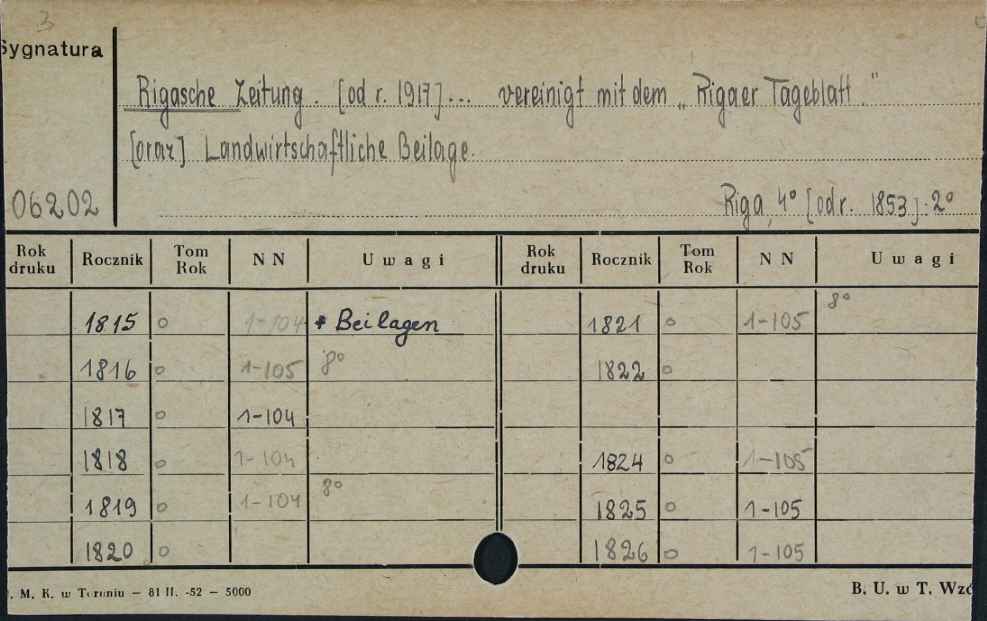 3
Sygnatura
Rigasche Zeitung. [od r. 1917]... vereinigt mit dem „Rigaer Tageblatt."
[oraz] Landwirtschaftliche Beilage.
06202
Riga, 4° [od r. 1853]: 2°
Rok druku Rocznik Tom Rok NN Uwagi Rok druku Rocznik Tom Rok NN Uwagi
1815 o 1-104 + Beilagen 1821 o 1-105 8°
1816 o 1-105 8° 1822 o
1817 o 1-104
1818 o 1-104 1824 o 1-105
1819 o 1-104 8° 1825 o 1-105
1820 o 1826 o 1-105
. M. K. w Toruniu — 81 II. -52 — 5000 B. U. w T. Wzó